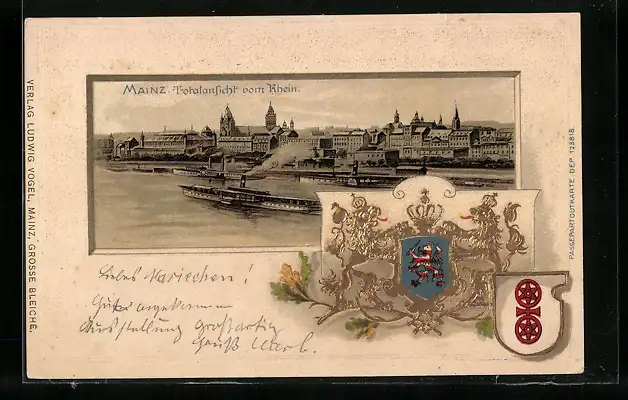 MAINZ. Totalansicht vom Rhein.
VERLAG LUDWIG VOGEL, MAINZ, GROSSE BLEICHE.
PASSEPARTOUTKARTE DEP. 123818.
Liebes Mariechen!
Gut angekommen
Ausstellung großartig
Gruß